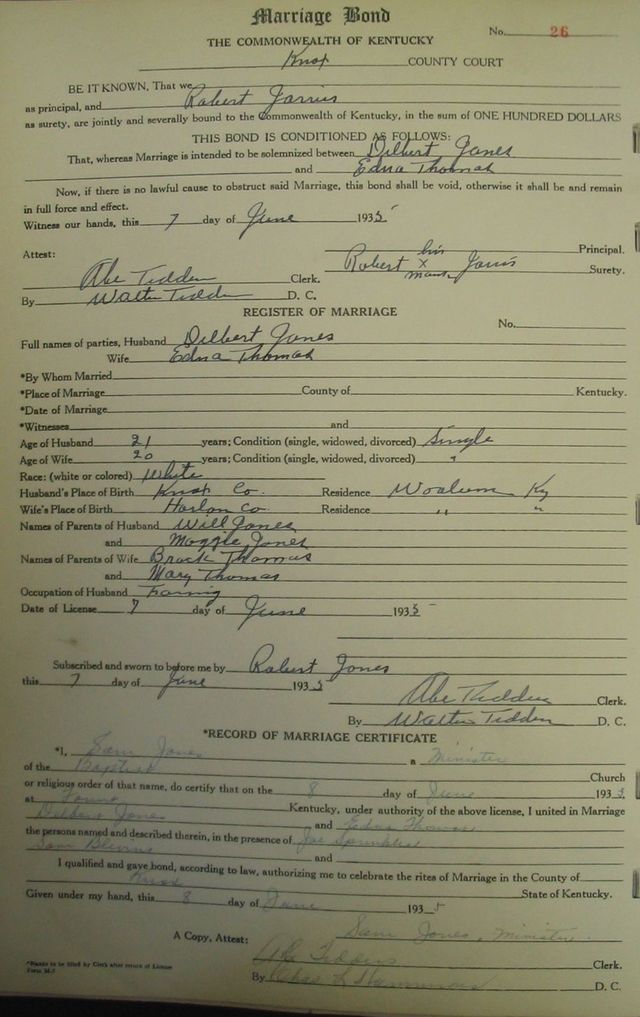 Marriage Bond
No. 26
THE COMMONWEALTH OF KENTUCKY
Knox COUNTY COURT
BE IT KNOWN, That we
as principal, and Robert Jarvis
as surety, are jointly and severally bound to the Commonwealth of Kentucky, in the sum of ONE HUNDRED DOLLARS
THIS BOND IS CONDITIONED AS FOLLOWS:
That, whereas Marriage is intended to be solemnized between Dilbert Jones
and Edna Thomas
Now, if there is no lawful cause to obstruct said Marriage, this bond shall be void, otherwise it shall be and remain
in full force and effect.
Witness our hands, this 7 day of June 1935
Principal.
Attest: Robert his x mark Jarvis Surety.
Abe Tedders Clerk.
By Walter Tedders D. C.
REGISTER OF MARRIAGE
No.
Full names of parties, Husband Dilbert Jones
Wife Edna Thomas
*By Whom Married
*Place of Marriage County of Kentucky.
*Date of Marriage
*Witnesses and
Age of Husband 21 years; Condition (single, widowed, divorced) Single
Age of Wife 20 years; Condition (single, widowed, divorced) "
Race: (white or colored) White
Husband's Place of Birth Knox Co. Residence Woolum Ky
Wife's Place of Birth Harlan Co. Residence " "
Names of Parents of Husband Will Jones
and Maggie Jones
Names of Parents of Wife Brock Thomas
and Mary Thomas
Occupation of Husband Farming
Date of License 7 day of June 1935
Subscribed and sworn to before me by Robert Jones
this 7 day of June 1935
Abe Tedders Clerk.
By Walter Tedders D. C.
*RECORD OF MARRIAGE CERTIFICATE
*I, Sam Jones a Minister
of the Baptist Church
or religious order of that name, do certify that on the 8 day of June 1935,
at Kentucky, under authority of the above license, I united in Marriage
Dilbert Jones and Edna Thomas
the persons named and described therein, in the presence of Joe
Sam Blevins and
I qualified and gave bond, according to law, authorizing me to celebrate the rites of Marriage in the County of
Knox State of Kentucky.
Given under my hand, this 8 day of June 1935
Sam Jones, Minister
A Copy, Attest: Abe Tedders Clerk.
By D. C.
*Blanks to be filled by Clerk after return of License